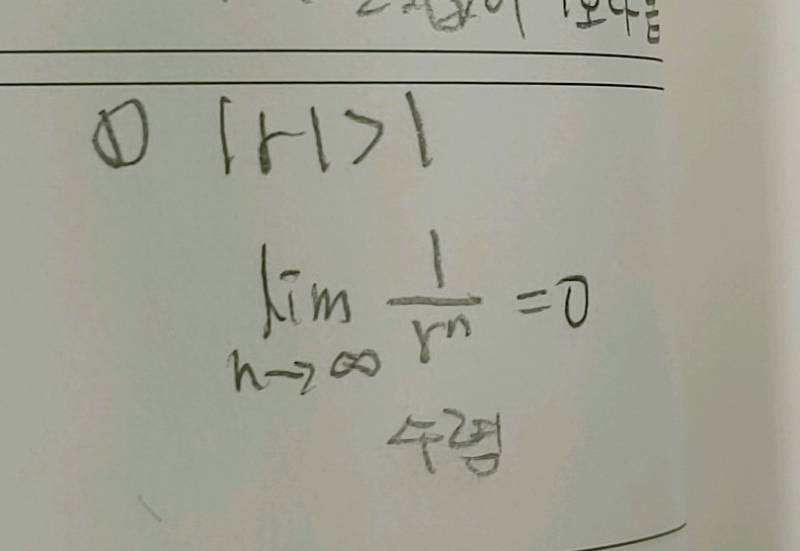 ① |r|>1
lim 1/rⁿ =0
n→∞
수렴